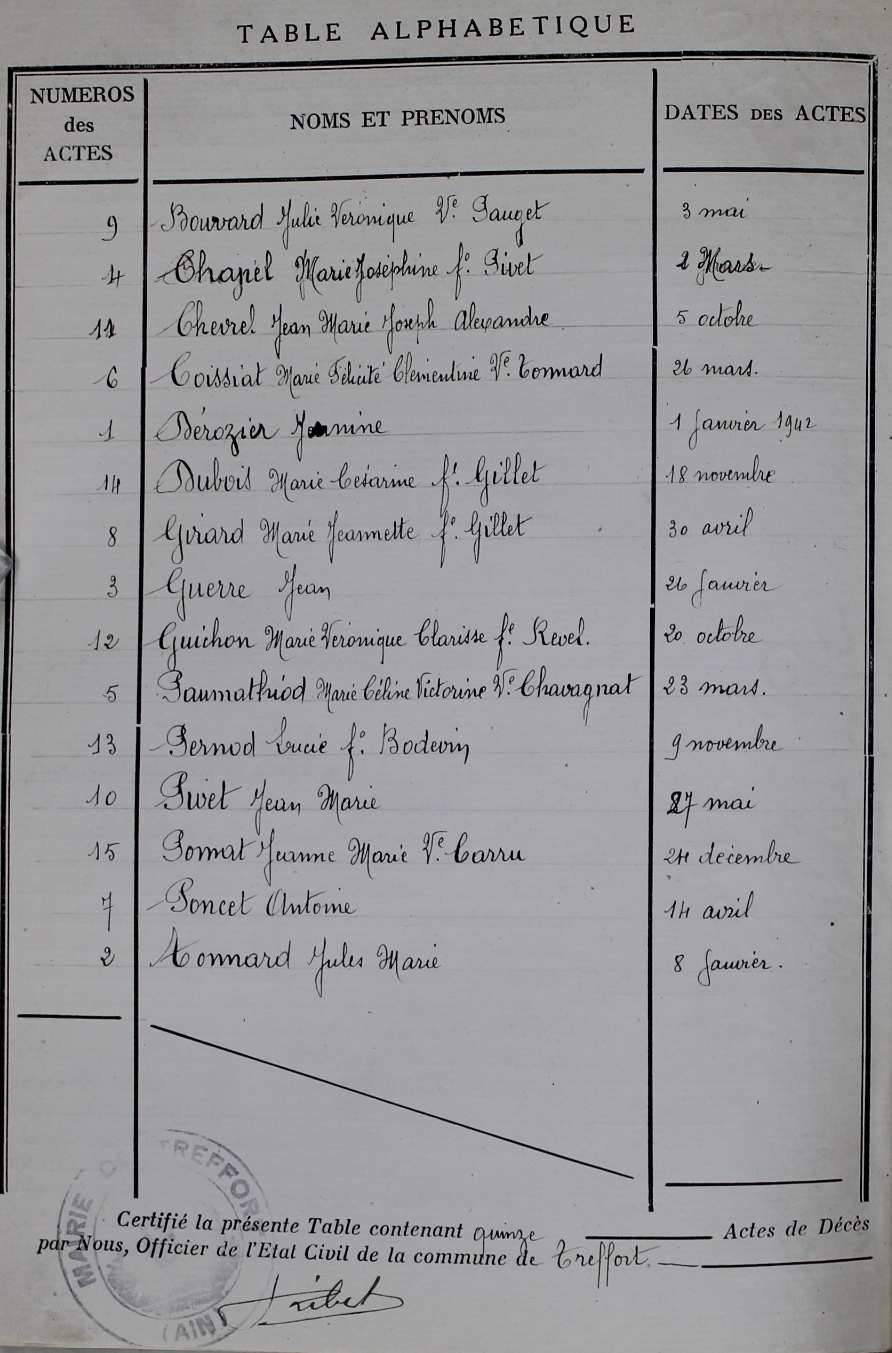 TABLE ALPHABETIQUE
NUMEROS des ACTES NOMS ET PRENOMS DATES DES ACTES
9 Bouvard Julie Véronique Ve. Pauget 3 mai
4 Chapel Marie Joséphine fe. Pivet 2 Mars
11 Chevrel Jean Marie Joseph Alexandre 5 octobre
6 Coissiat Marie Félicité Clémentine Ve. Tonnard 26 mars.
1 Dérozier Jeannine 1 Janvier 1942
14 Dubois Marie Césarine fe. Gillet 18 novembre
8 Girard Marie Jeannette fe. Gillet 30 avril
3 Guerre Jean 26 Janvier
12 Guichon Marie Véronique Clarisse fe. Revel. 20 octobre
5 Paumathiod Marie Céline Victorine Ve. Chavagnat 23 mars.
13 Pernod Lucie fe. Bodevin 9 novembre
10 Pivet Jean Marie 27 mai
15 Pomat Jeanne Marie Ve. Carru 24 décembre
7 Poncet Antoine 14 avril
2 Tonnard Jules Marie 8 Janvier.
Certifié la présente Table contenant quinze Actes de Décès
par Nous, Officier de l'Etat Civil de la commune de Treffort.
MAIRIE DE TREFFORT
(AIN)